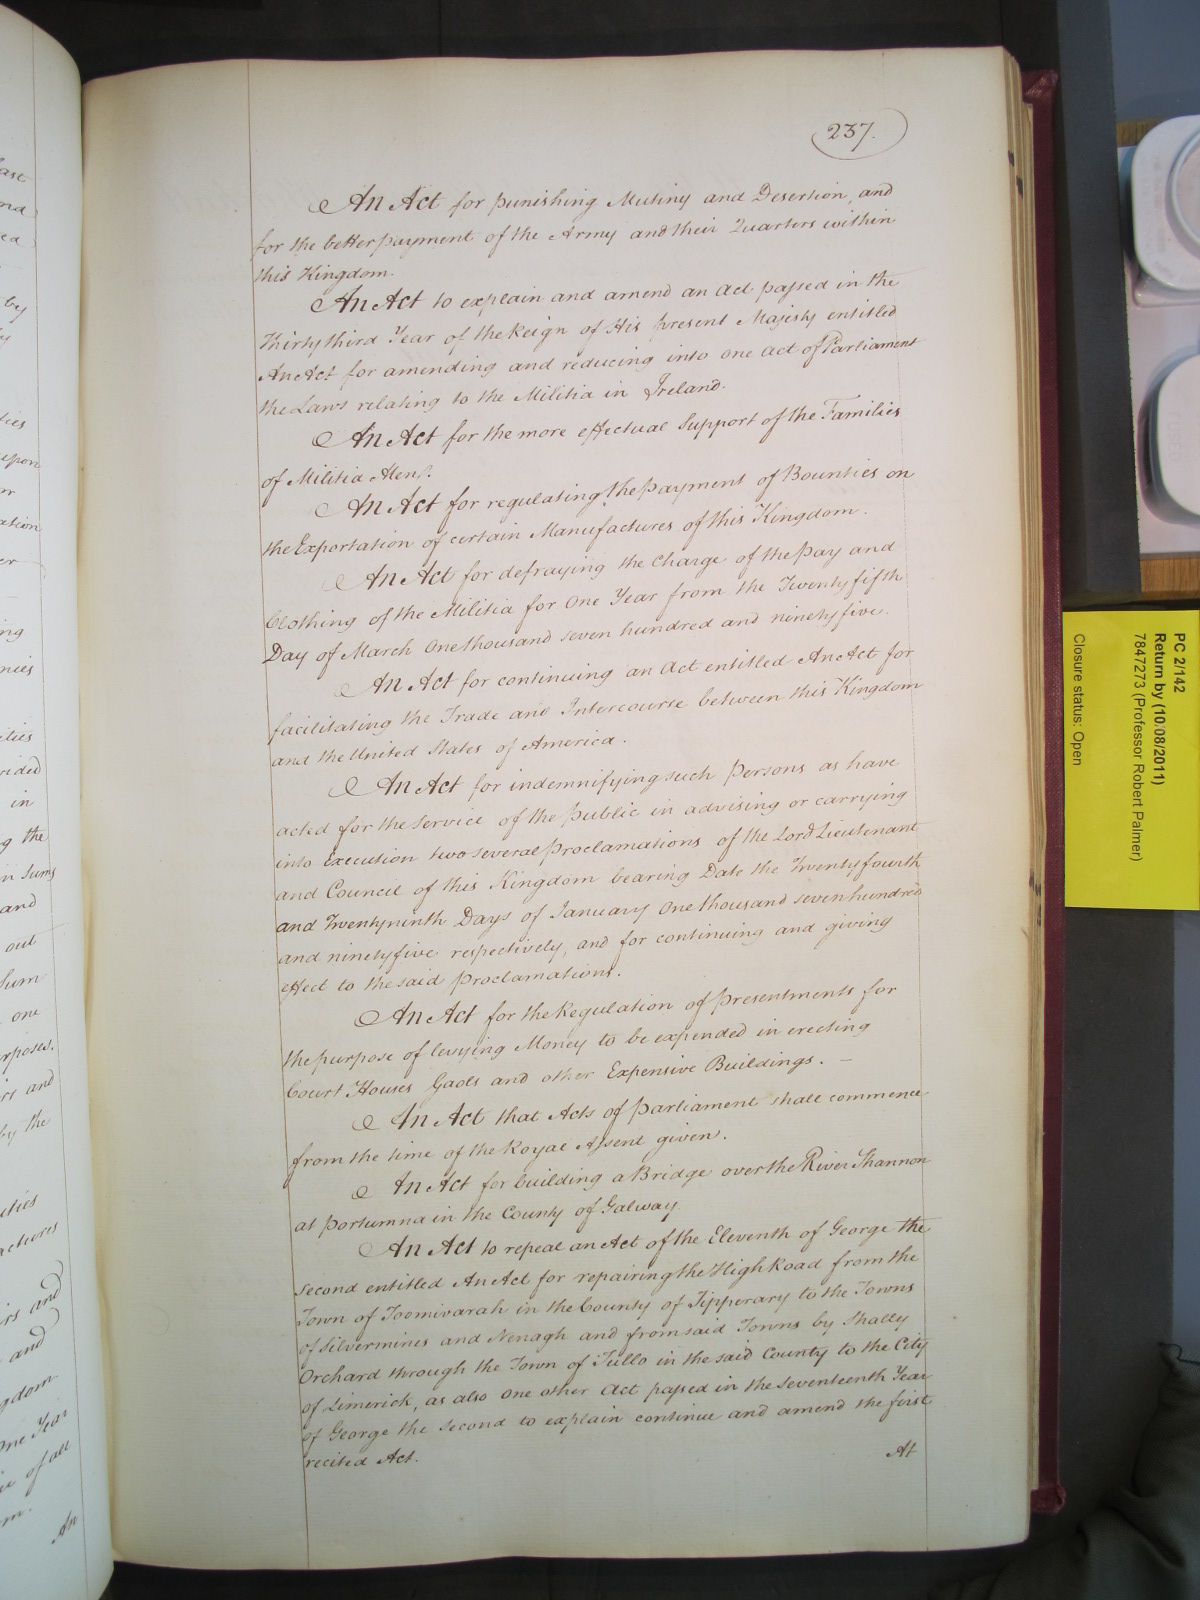 237.
An Act for punishing Mutiny and Desertion, and
for the better payment of the Army and their Quarters within
this Kingdom.
An Act to explain and amend an Act passed in the
Thirty third Year of the Reign of His present Majesty entitled
An Act for amending and reducing into one Act of Parliament
the Laws relating to the Militia in Ireland.
An Act for the more effectual Support of the Families
of Militia Men.
An Act for regulating the payment of Bounties on
the Exportation of certain Manufactures of this Kingdom.
An Act for defraying the Charge of the Pay and
Cloathing of the Militia for One Year from the Twenty fifth
Day of March One thousand seven hundred and ninety five.
An Act for continuing an Act entitled An Act for
facilitating the Trade and Intercourse between this Kingdom
and the United States of America.
An Act for indemnifying such Persons as have
acted for the Service of the Public in advising or carrying
into Execution two several Proclamations of the Lord Lieutenant
and Council of this Kingdom bearing Date the Twenty fourth
and Twenty ninth Days of January One thousand seven hundred
and ninety five respectively, and for continuing and giving
effect to the said Proclamations.
An Act for the Regulation of presentments for
the purpose of levying Money to be expended in erecting
Court Houses Gaols and other Expensive Buildings. –
An Act that Acts of Parliament shall commence
from the time of the Royal Assent given.
An Act for building a Bridge over the River Shannon
at Portumna in the County of Galway.
An Act to repeal an Act of the Eleventh of George the
second entitled An Act for repairing the High Road from the
Town of Toomivarah in the County of Tipperary to the Towns
of Silvermines and Nenagh and from said Towns by Shally
Orchard through the Town of Tullo in the said County to the City
of Limerick, as also One other Act passed in the Seventeenth Year
of George the Second to explain continue and amend the first
recited Act.
At
PC 2/142
Return by (10/08/2011)
7847273 (Professor Robert Palmer)
Closure status: Open
ast
by
upon
ation
ing
in
g the
and
out
Sum
one
rposes.
rs and
by the
gdom
One Year
of all
An